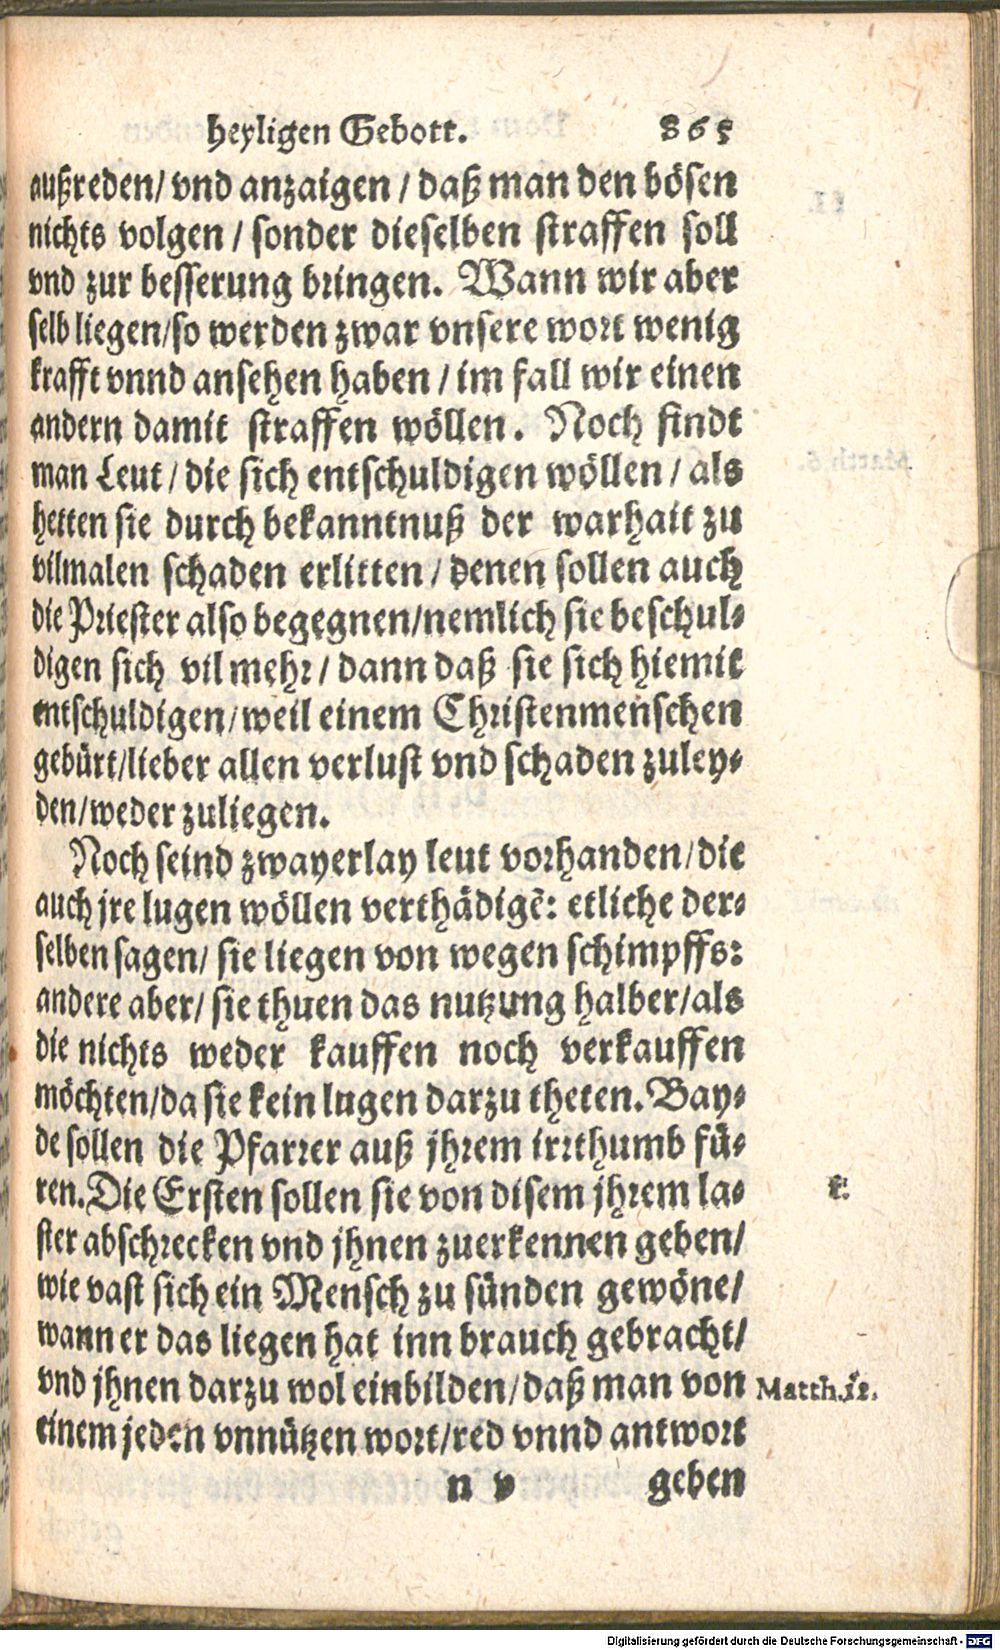 heyligen Gebott. 865
außreden/ vnd anzaigen / daß man den bösen
nichts volgen / sonder dieselben straffen soll
vnd zur besserung bringen. Wann wir aber
selb liegen/so werden zwar vnsere wort wenig
krafft vnnd ansehen haben / im fall wir einen
andern damit straffen wöllen. Noch findt
man Leut / die sich entschuldigen wöllen / als
hetten sie durch bekanntnuß der warhait zu
vilmalen schaden erlitten / denen sollen auch
die Priester also begegnen/nemlich sie beschul-
digen sich vil mehr / dann daß sie sich hiemit
entschuldigen/weil einem Christenmenschen
gebürt/lieber allen verlust vnd schaden zuley-
den/weder zuliegen.
Noch seind zwayerlay leut vorhanden/die
auch jre lugen wöllen verthädigẽ: etliche der-
selben sagen/ sie liegen von wegen schimpffs:
andere aber/ sie thuen das nutzung halber/als
die nichts weder kauffen noch verkauffen
möchten/da sie kein lugen darzu theten. Bay-
de sollen die Pfarrer auß jhrem irrthumb fü-
ren. Die Ersten sollen sie von disem jhrem la-
ster abschrecken vnd jhnen zuerkennen geben/
wie vast sich ein Mensch zu sünden gewöne/
wann er das liegen hat inn brauch gebracht/
vnd jhnen darzu wol einbilden/daß man von
Matth.12.
einem jeden vnnützen wort/red vnnd antwort
n v geben
Digitalisierung gefördert durch die Deutsche Forschungsgemeinschaft - DFG